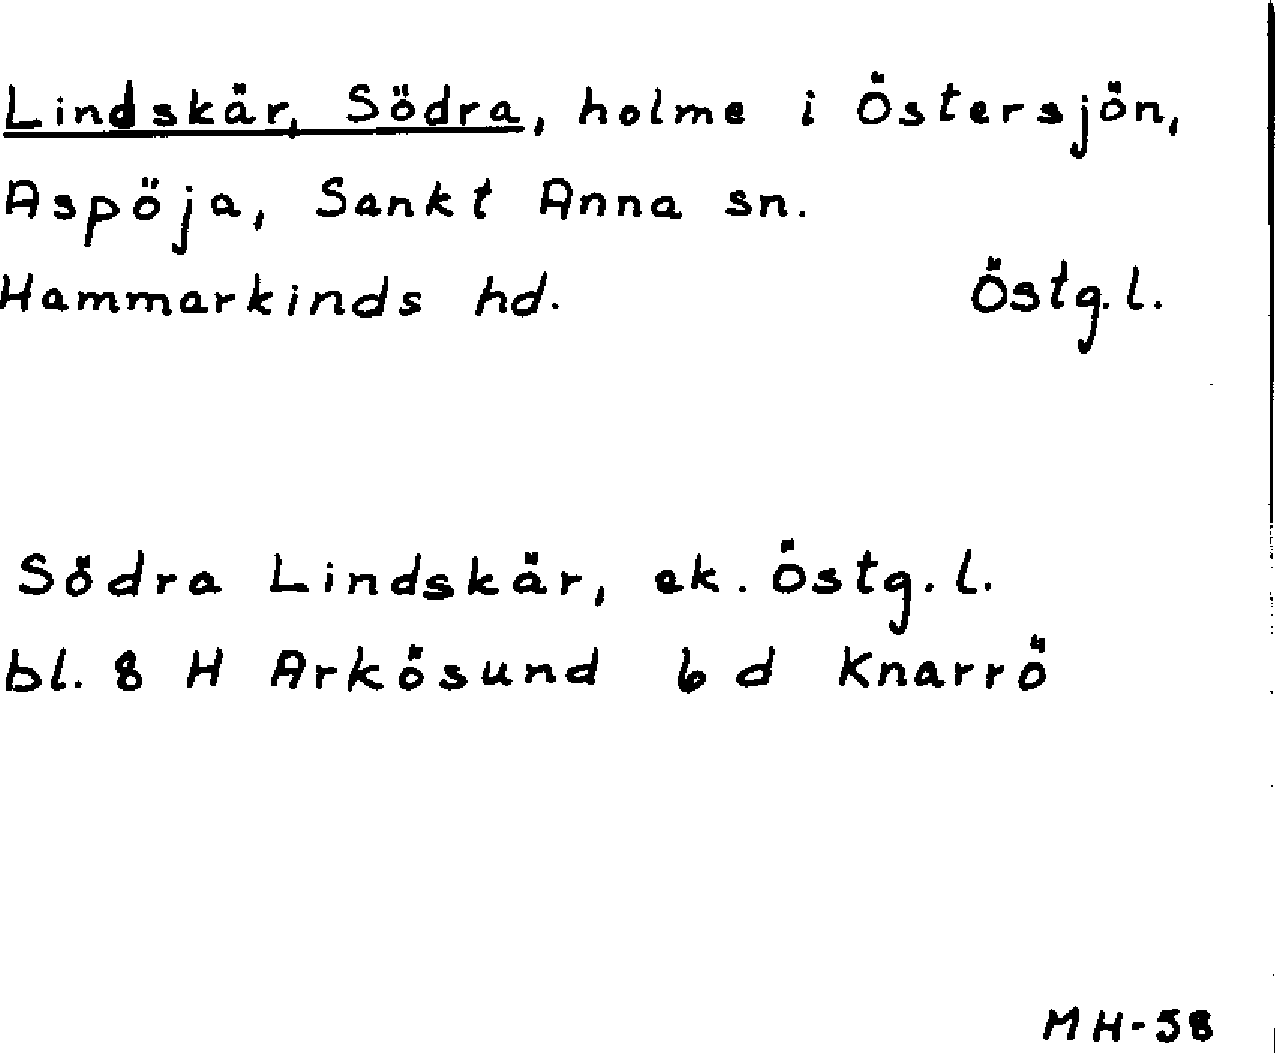 Lindskär, Södra, holme i Östersjön,
Aspöja, Sankt Anna sn.
Hammarkinds hd. Östg.l.
Södra Lindskär, ek. Östg.l.
bl. 8 H Arkösund 6 d Knarrö
MH-58